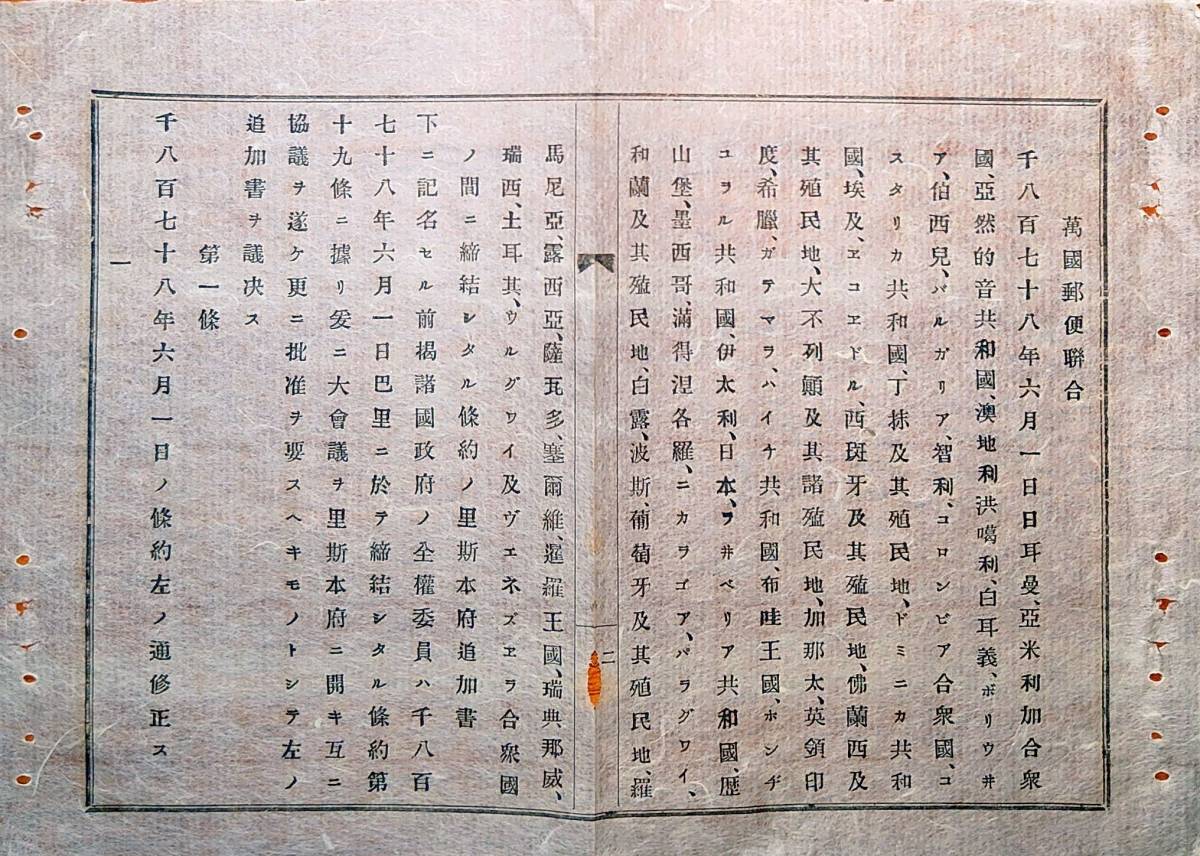 萬國郵便聯合
千八百七十八年六月一日日耳曼、亞米利加合衆
國、亞然的音共和國、澳地利洪噶利、白耳義、ボリウ井
ア、伯西兒、バルガリア、智利、コロンビア合衆國、コ
スタリカ共和國、丁抹及其殖民地、ドミニカ共和
國、埃及、ヱコヱドル、西斑牙及其殖民地、佛蘭西及
其殖民地、大不列顛及其諸殖民地、加那太、英領印
度、希臘、ガテマラ、ハイチ共和國、布哇王國、ホンヂ
ユラル共和國、伊太利、日本、ラ井ベリア共和國、歴
山堡、墨西哥、滿得涅各羅、ニカラゴア、パラグワイ、
和蘭及其殖民地、白露、波斯、葡萄牙及其殖民地、羅
二
馬尼亞、露西亞、薩瓦多、塞爾維、暹羅王國、瑞典那威、
瑞西、土耳其、ウルグワイ及ヴエネズヱラ合衆國
ノ間ニ締結シタル條約ノ里斯本府追加書
下ニ記名セル前揭諸國政府ノ全權委員ハ千八百
七十八年六月一日巴里ニ於テ締結シタル條約第
十九條ニ據リ爰ニ大會議ヲ里斯本府ニ開キ互ニ
協議ヲ遂ケ更ニ批准ヲ要スヘキモノトシテ左ノ
追加書ヲ議决ス
第一條
千八百七十八年六月一日ノ條約左ノ通修正ス
一